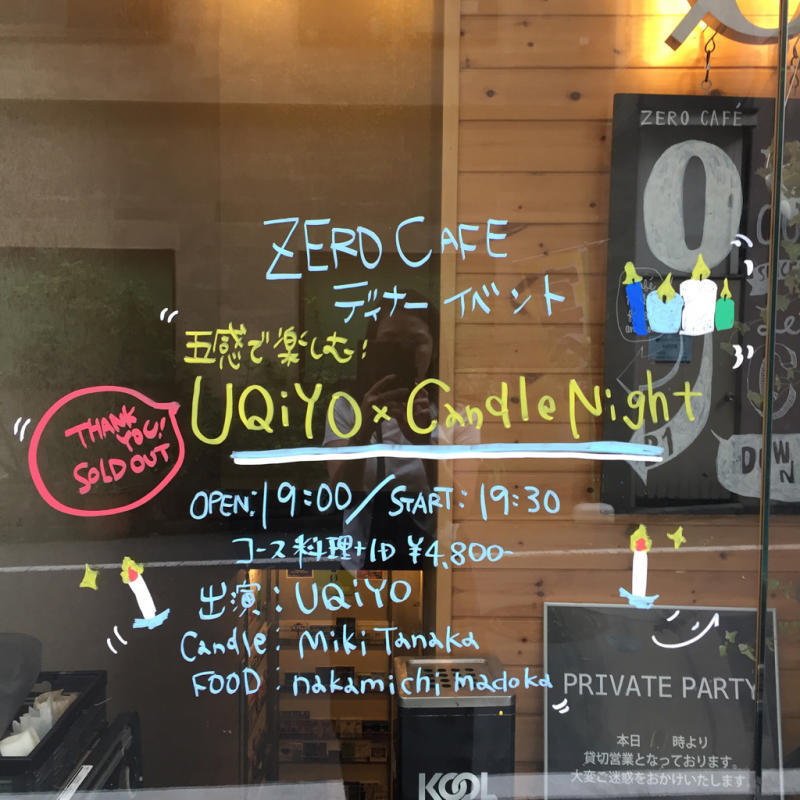 ZERO CAFÉ
0
ZERO CAFE
ディナーイベント
五感で楽しむ!
UQiYO × Candle Night
THANK
YOU!
SOLD OUT
B1
DOWN
OPEN: 19:00 / START: 19:30
コース料理+1D ¥4,800-
出演: UQiYO
Candle: Miki Tanaka
FOOD: nakamichi madoka
PRIVATE PARTY
本日 時より
貸切営業となっております。
大変ご迷惑をおかけいたします
KOOL